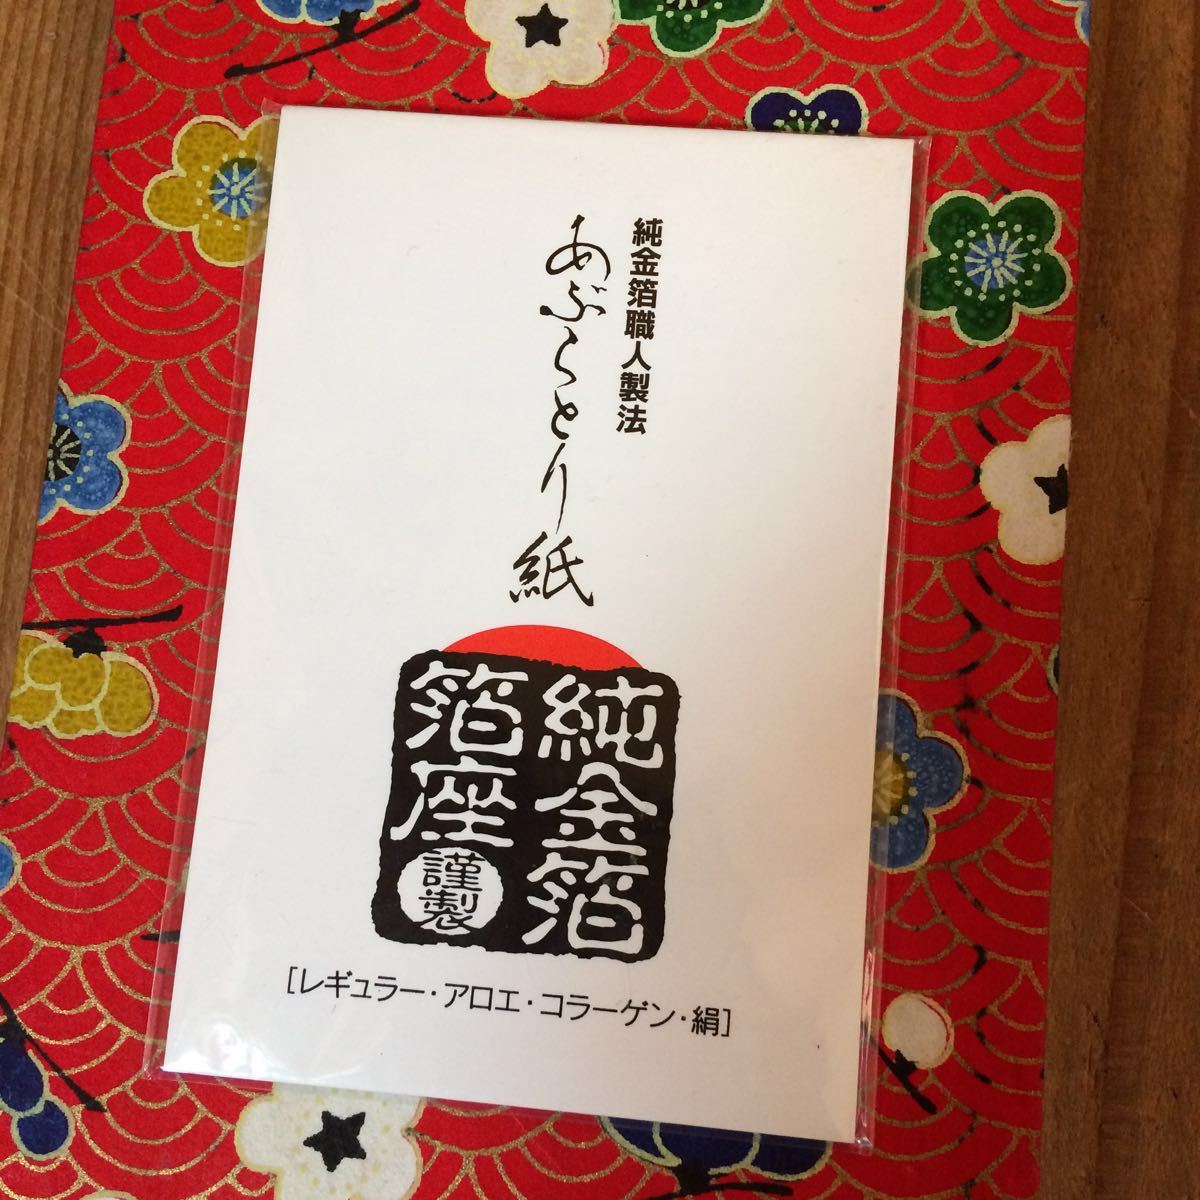 純金箔職人製法
あぶらとり紙
純金箔
箔座
謹製
[レギュラー・アロエ・コラーゲン・絹]